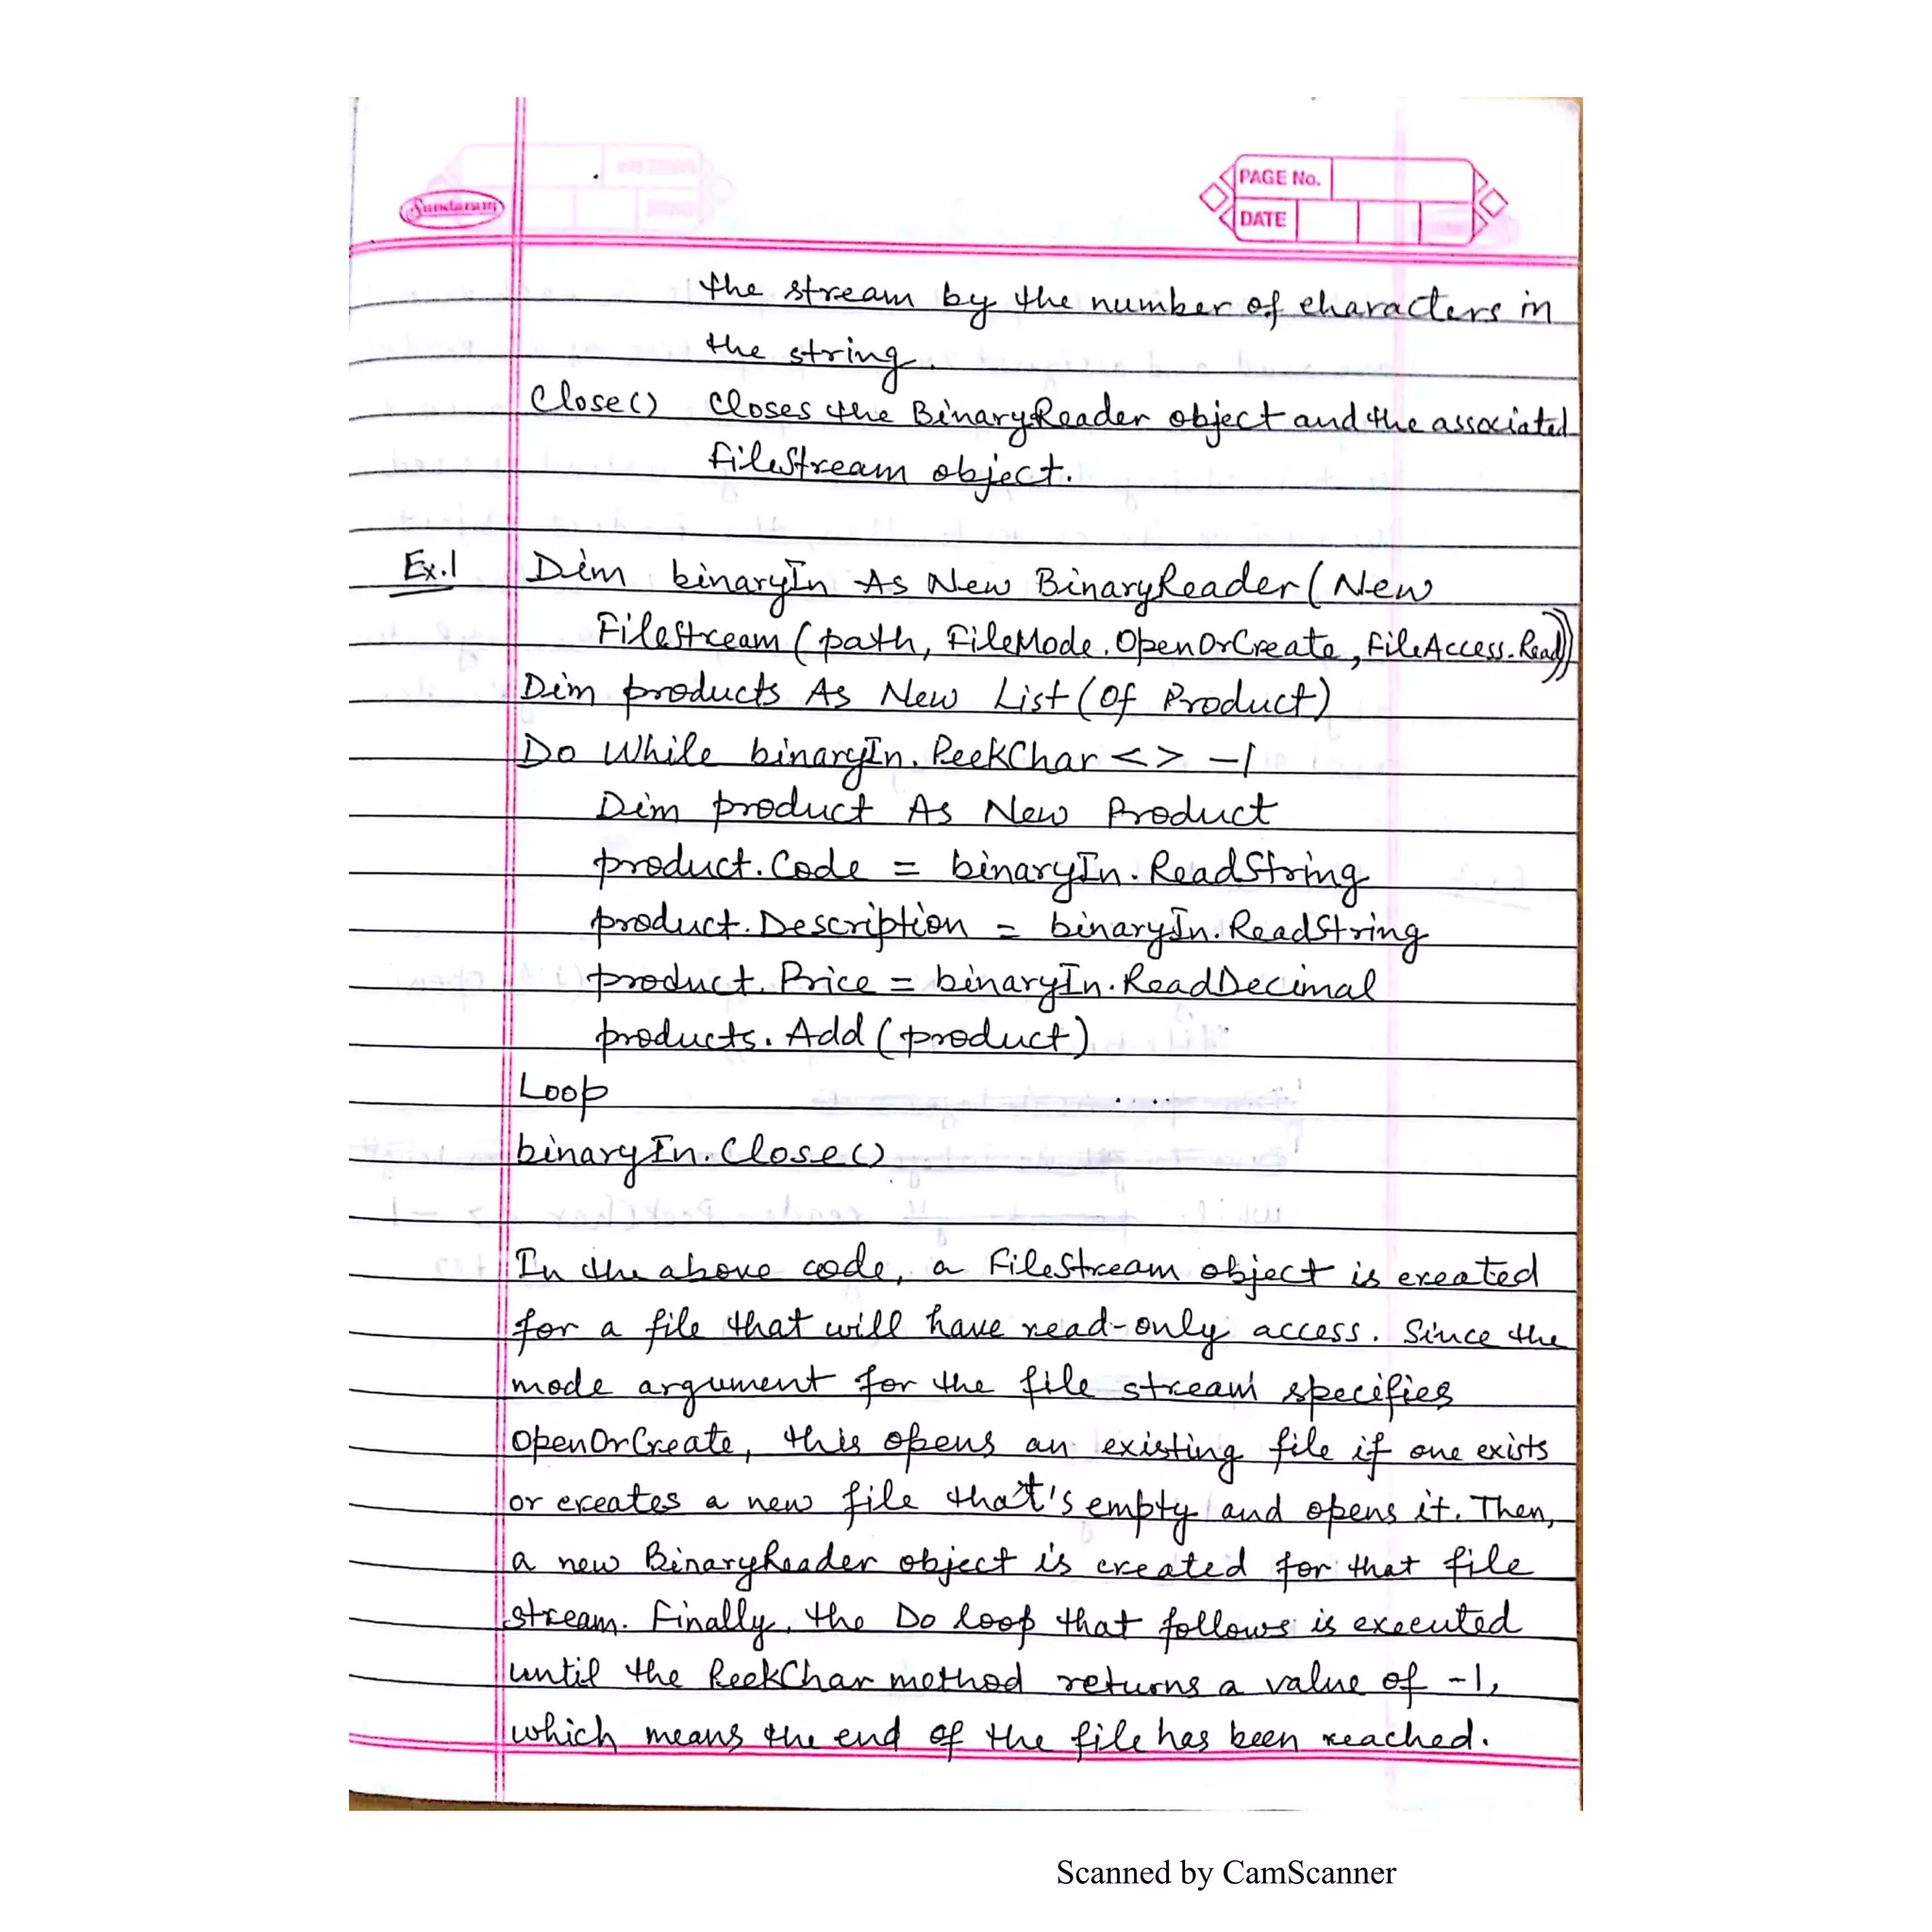 Sundaram
PAGE No.
DATE
the stream by the number of characters in
the string.
Close() Closes the BinaryReader object and the associated
FileStream object.
Ex.1 Dim binaryIn As New BinaryReader(New
FileStream(path, FileMode.OpenOrCreate, FileAccess.Read))
Dim products As New List(Of Product)
Do While binaryIn.PeekChar <> -1
Dim product As New Product
product.Code = binaryIn.ReadString
product.Description = binaryIn.ReadString
product.Price = binaryIn.ReadDecimal
products.Add(product)
Loop
binaryIn.Close()
In the above code, a FileStream object is created
for a file that will have read-only access. Since the
mode argument for the file stream specifies
OpenOrCreate, this opens an existing file if one exists
or creates a new file that's empty and opens it. Then,
a new BinaryReader object is created for that file
stream. Finally, the Do loop that follows is executed
until the PeekChar method returns a value of -1,
which means the end of the file has been reached.
Scanned by CamScanner